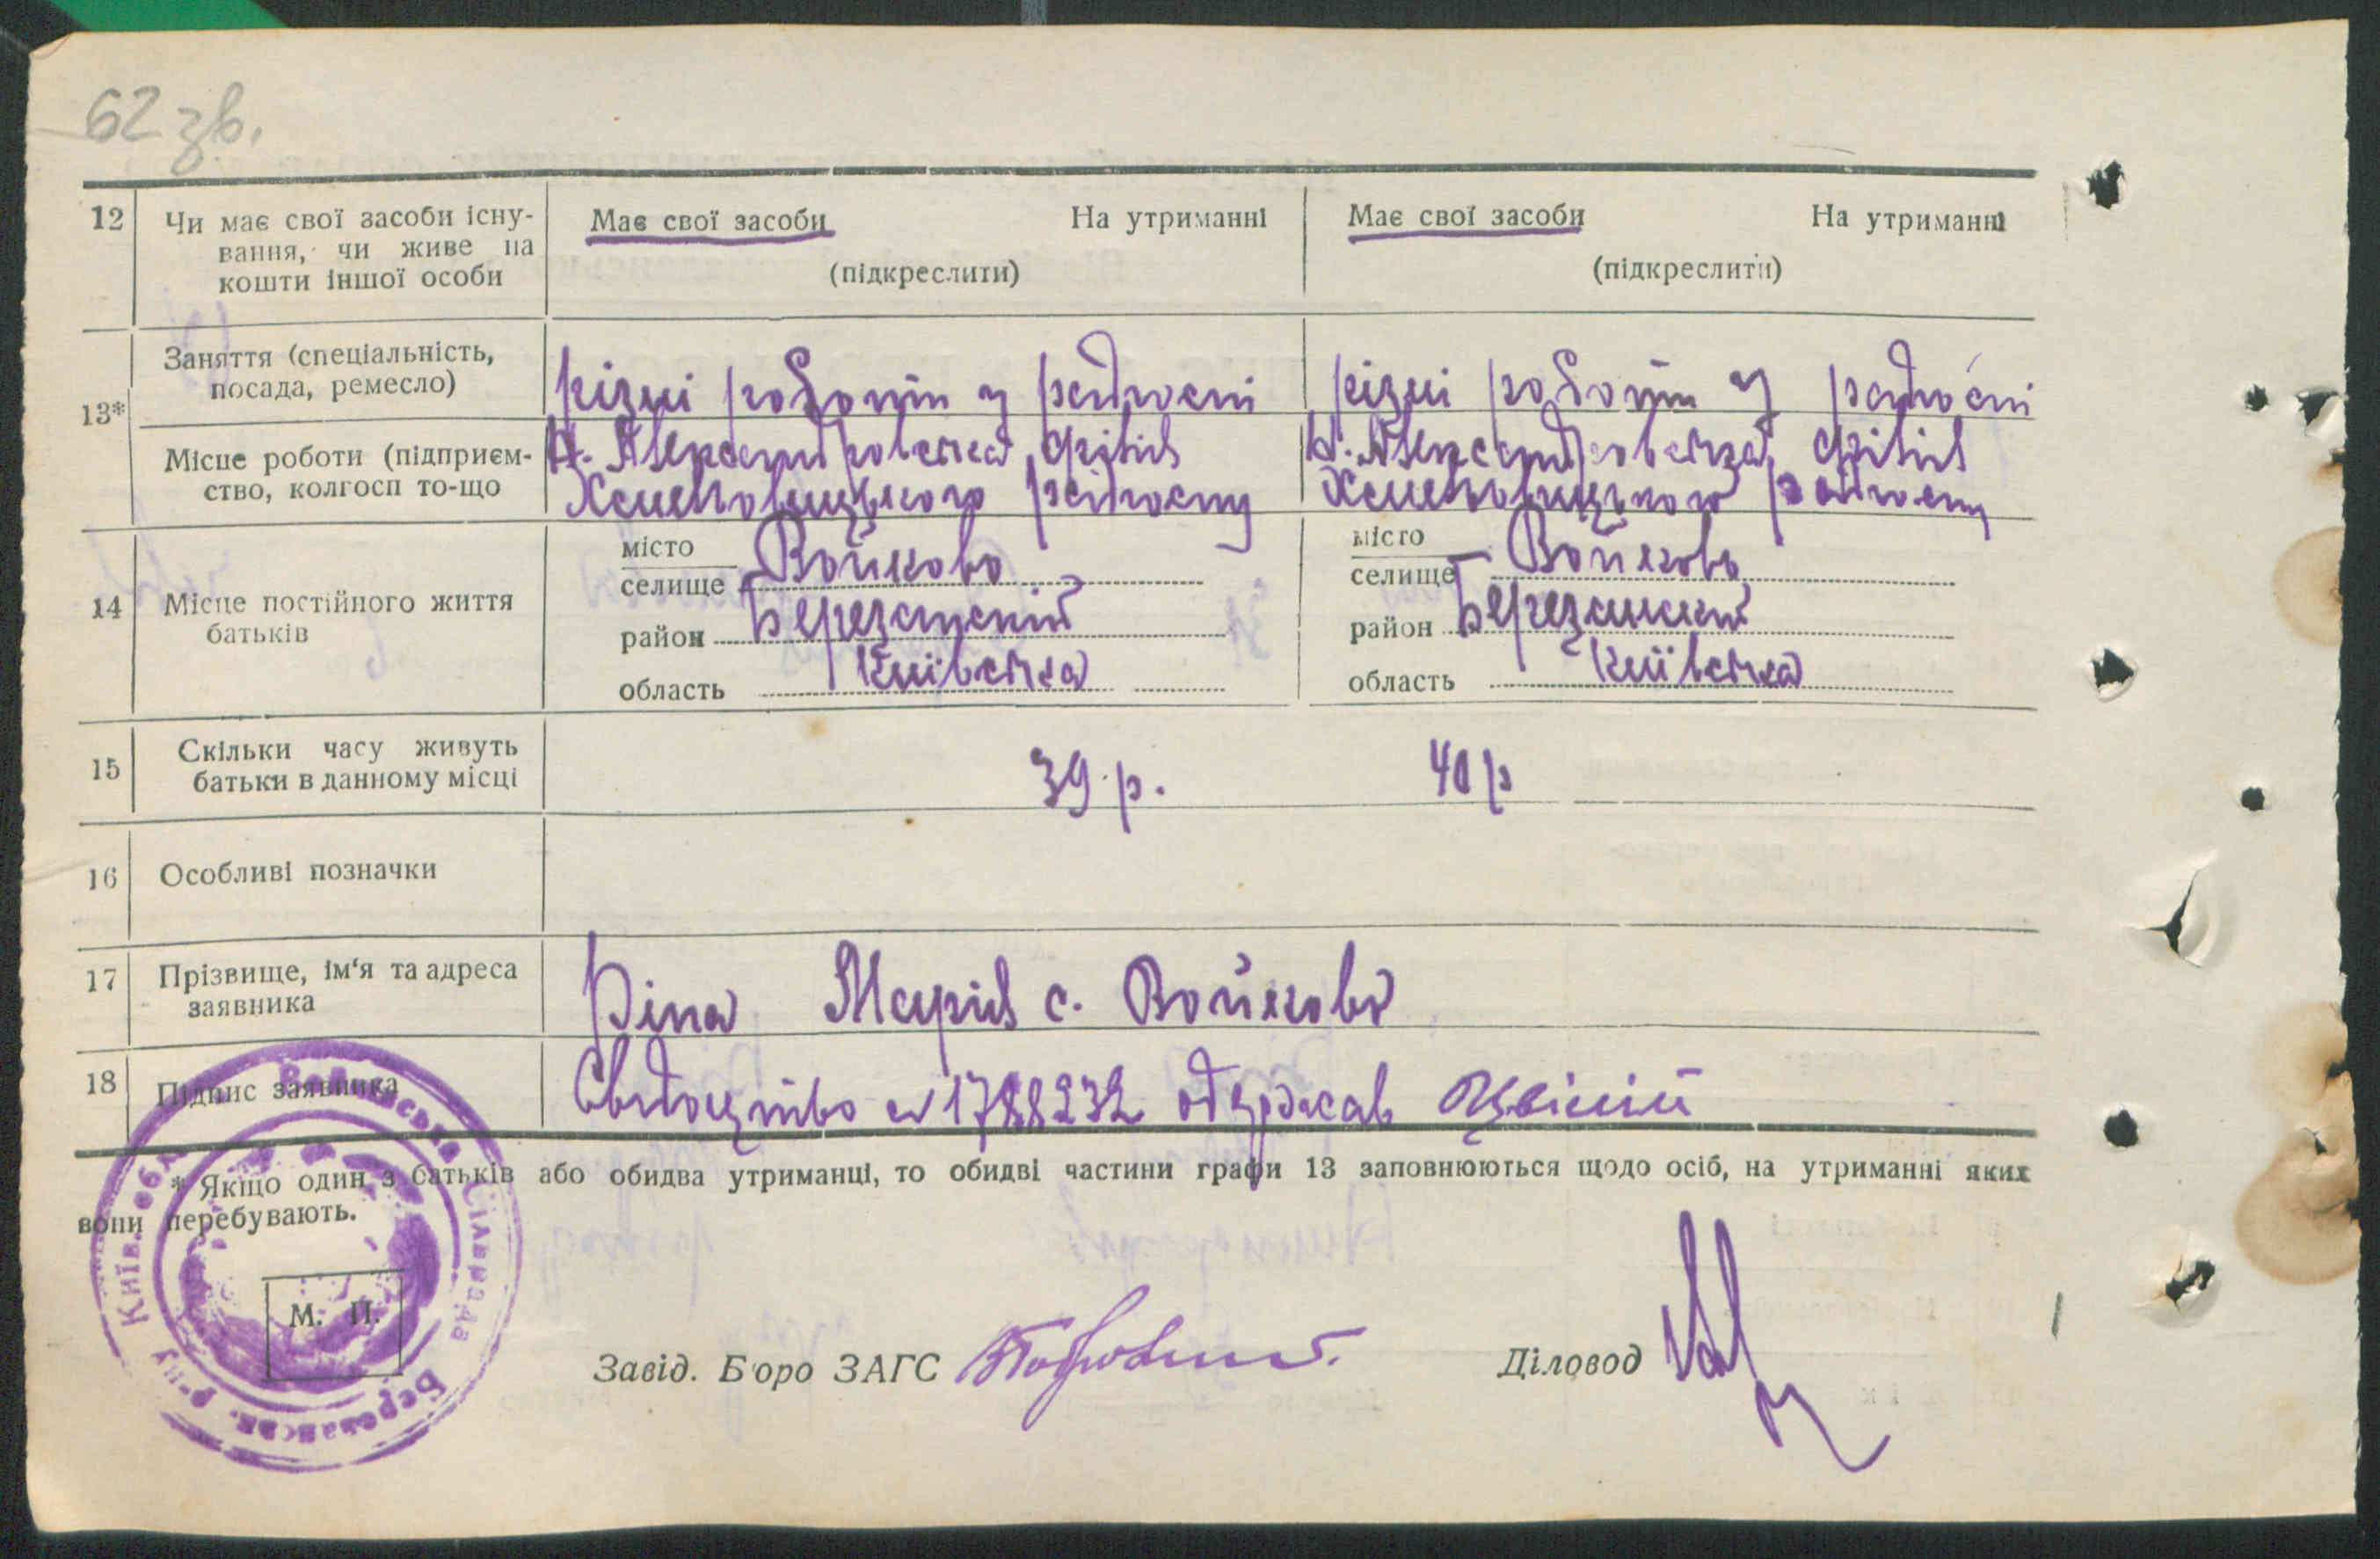 62 зв.
12 Чи має свої засоби існу-
вання, чи живе на
кошти іншої особи
Має свої засоби На утриманні
(підкреслити)
Має свої засоби На утриманні
(підкреслити)
13*
Заняття (спеціальність,
посада, ремесло)
різні роботи у радгоспі
різні роботи у радгоспі
Місце роботи (підприєм-
ство, колгосп то-що
філія
радгоспу
філія
радгоспу
14 Місце постійного життя
батьків
місто
селище Войково
район Березанський
область Київська
місто
селище Войково
район Березанський
область Київська
15 Скільки часу живуть
батьки в данному місці
39 р. 40 р
16 Особливі позначки
17 Прізвище, ім'я та адреса
заявника
Ріпа Марія с. Войково
18 Підпис заявника
Свідоцтво № 1788232 одержав
* Якщо один з батьків або обидва утриманці, то обидві частини графи 13 заповнюються щодо осіб, на утриманні яких
вони перебувають.
Київ. обл. Сільрада Березанськ. р-ну
М. П.
Завід. Бюро ЗАГС
Діловод